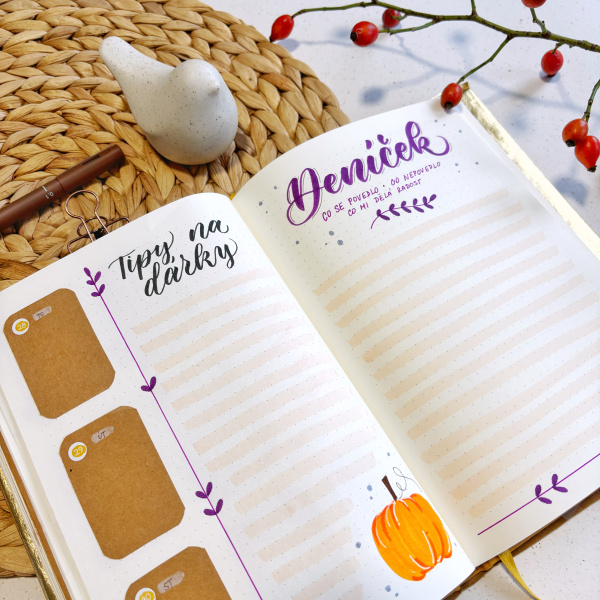 Tipy na
dárky
28 PO
29 ÚT
30 ST
Deníček
CO SE POVEDLO, CO NEPOVEDLO
CO MI DĚLÁ RADOST